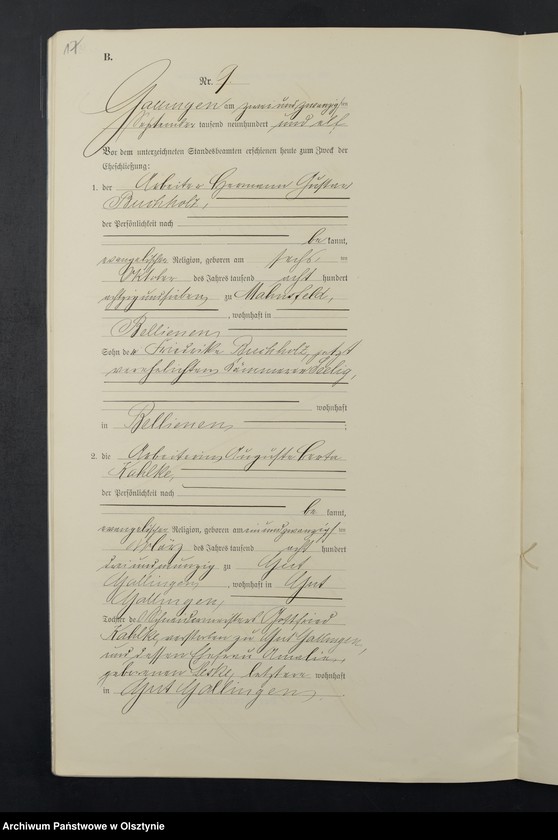 B.
Nr. 9
Gallingen am zwei und zwanzigsten
September tausend neunhundert und elf
Vor dem unterzeichneten Standesbeamten erschienen heute zum Zweck der
Eheschließung:
1. der Arbeiter Hermann Gustav
Buchholz,
der Persönlichkeit nach
be kannt,
evangelischer Religion, geboren am sechsten
Oktober des Jahres tausend acht hundert
achtzig und sieben zu Mahnsfeld,
, wohnhaft in
Bellienen
Sohn der Friederike Buchholz, jetzt
verehelichten Kämmerer Seelig,
wohnhaft
in Bellienen ;
2. die Arbeiterin Auguste Berta
Kahlke,
der Persönlichkeit nach
be kannt,
evangelischer Religion, geboren am einundzwanzigsten
März des Jahres tausend acht hundert
drei und neunzig zu Gut
Gallingen, wohnhaft in Gut
Gallingen,
Tochter des Gottfried
Kahlke, verstorben zu Gut Gallingen,
und dessen Ehefrau Amalie,
geborenen Leske, letztere wohnhaft
in Gut Gallingen.
Archiwum Państwowe w Olsztynie